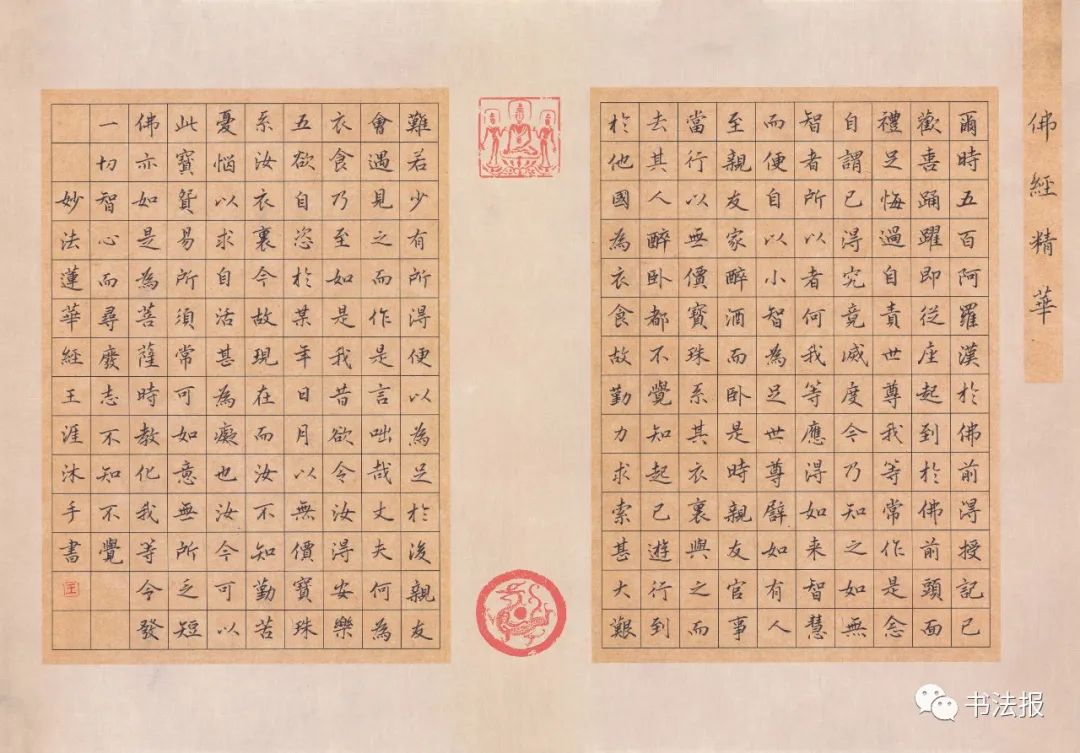 佛經精華
爾時五百阿羅漢於佛前得授記已
歡喜踊躍即從座起到於佛前頭面
禮足悔過自責世尊我等常作是念
自謂已得究竟滅度今乃知之如無
智者所以者何我等應得如来智慧
而便自以小智為足世尊譬如有人
至親友家醉酒而卧是時親友官事
當行以無價寶珠系其衣裏與之而
去其人醉卧都不覺知起已遊行到
於他國為衣食故勤力求索甚大艱
難若少有所得便以為足於後親友
會遇見之而作是言咄哉丈夫何為
衣食乃至如是我昔欲令汝得安樂
五欲自恣於某年日月以無價寶珠
系汝衣裏今故現在而汝不知勤苦
憂惱以求自活甚為癡也汝今可以
此寶貿易所須常可如意無所乏短
佛亦如是為菩薩時教化我等令發
一切智心而尋廢志不知不覺
妙法蓮華經王涯沐手書
王
书法报